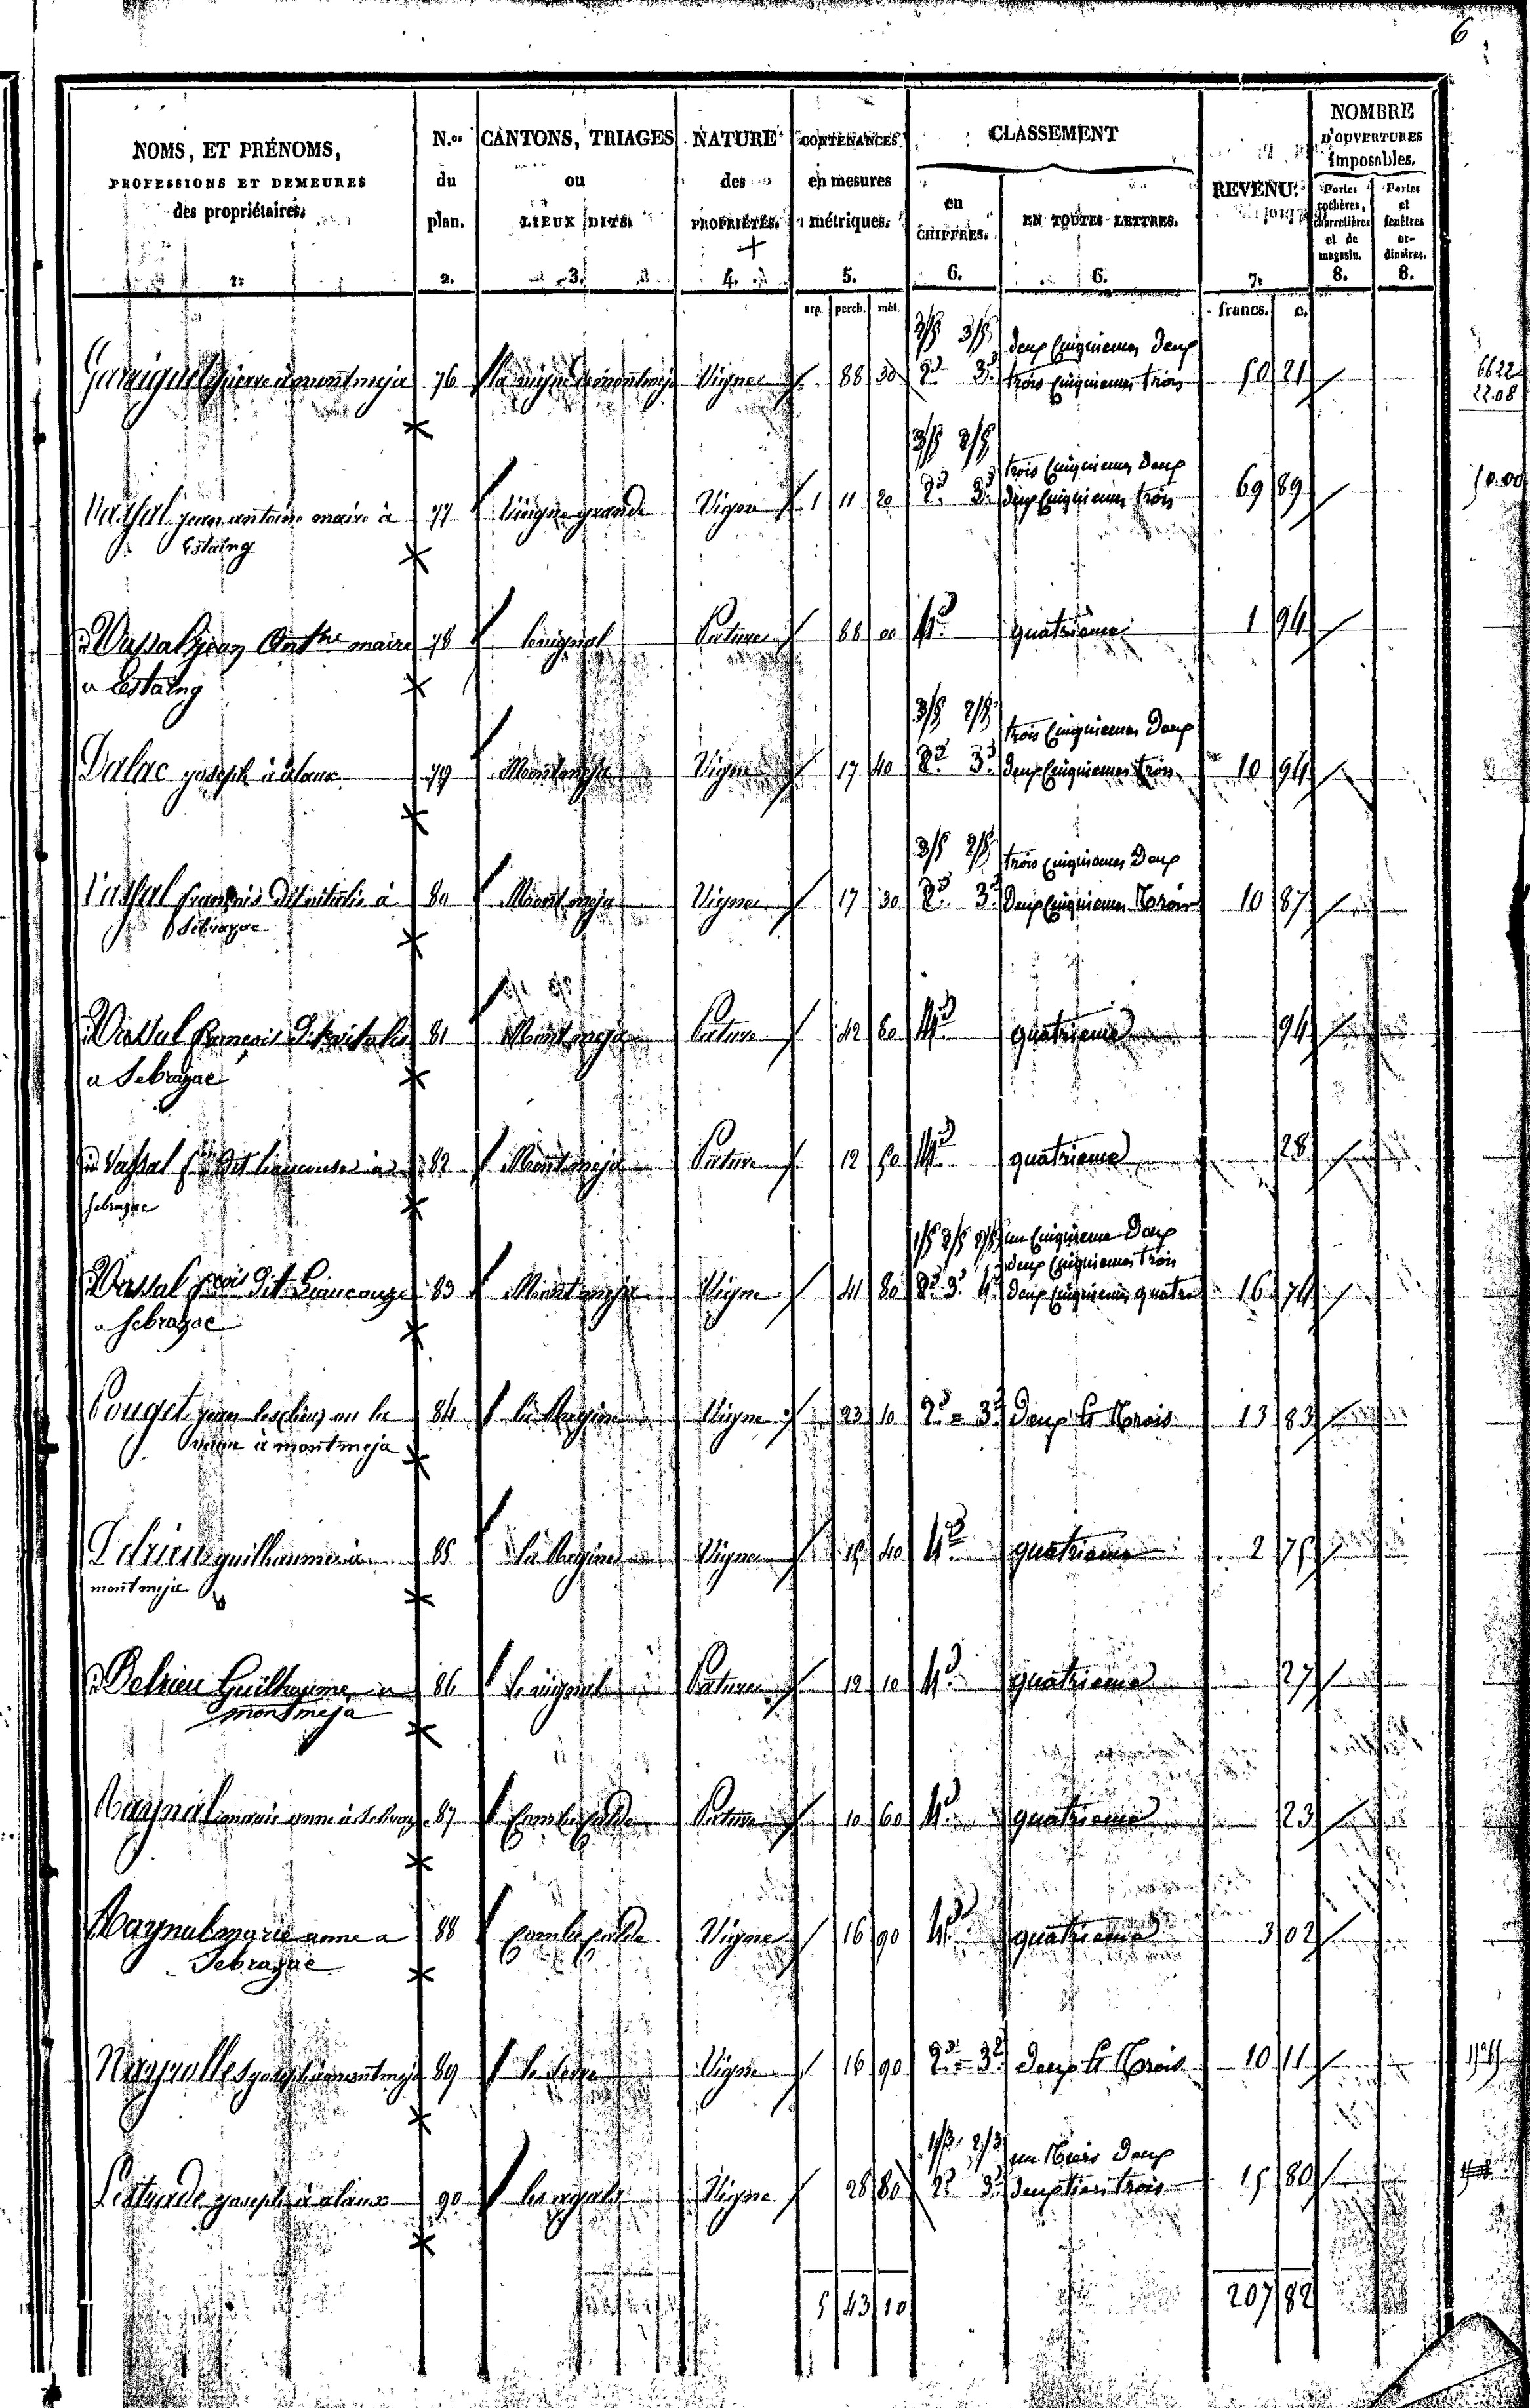 6
NOMS, ET PRÉNOMS, PROFESSIONS ET DEMEURES des propriétaires. 1.
N.os du plan. 2.
CANTONS, TRIAGES ou LIEUX DITS. 3.
NATURE des PROPRIÉTÉS. 4.
CONTENANCES en mesures métriques. 5.
CLASSEMENT
en CHIFFRES. 6.
EN TOUTES LETTRES. 6.
REVENU. 7.
NOMBRE D'OUVERTURES imposables.
Portes cochères, charretières et de magasin. 8.
Portes et fenêtres ordinaires. 8.
arp. perch. mèt. francs. c.
2/5 3/5 deux Cinquiemes deux
pierre à montmeja 76 la vigne de montmeja Vigne 88 30 2e 3e trois Cinquiemes trois 50 21
6622
2208
3/5 2/5 trois Cinquiemes deux
Vassal jean antoine maire à 77 Vigne grande Vigne 1 11 20 2e 3e deux Cinquiemes trois 69 89
Estaing
Vassal jean Anthne maire 78 Pature 88 00 4e quatrieme 1 94
a Estaing
3/5 2/5 trois Cinquiemes deux
Dalac joseph à alaux 79 Montmeja Vigne 17 40 2e 3e deux Cinquiemes trois 10 94
3/5 2/5 trois Cinquiemes deux
Vassal français dit vitalis à 80 Montmeja Vigne 17 30 2e 3e deux Cinquiemes trois 10 87
Sebrazac
Vassal françois dit vitalis 81 Montmeja Pature 42 60 4e quatrieme 94
a Sebrazac
Vassal dit à 82 Montmeja Pature 12 50 4e quatrieme 28
sebrazac
1/5 2/5 2/5 un Cinquieme deux
deux Cinquiemes trois
Vassal fcois dit 83 Montmeja Vigne 41 80 2e 3e 4e deux Cinquiemes quatre 16 74
a sebrazac
Pouget jean 84 la Vigne 23 10 2e = 3e deux et trois 13 83
à montmeja
Delrieu guilhaume à 85 Vigne 15 40 4e quatrieme 2 75
montmeja
Delrieu Guilhaume a 86 Pature 12 10 4e quatrieme 27
montmeja
Raynal marie anne à 87 Combe calde Pature 10 60 4e quatrieme 23
Raynal marie anne a 88 Combe calde Vigne 16 90 4e quatrieme 3 02
Sebrazac
joseph à montmeja 89 Vigne 16 90 2e = 3e deux et trois 10 11
1/3 2/3 un tiers deux
joseph à alaux 90 Vigne 28 80 2e 3e deux tiers trois 15 80
5 43 10 207 82